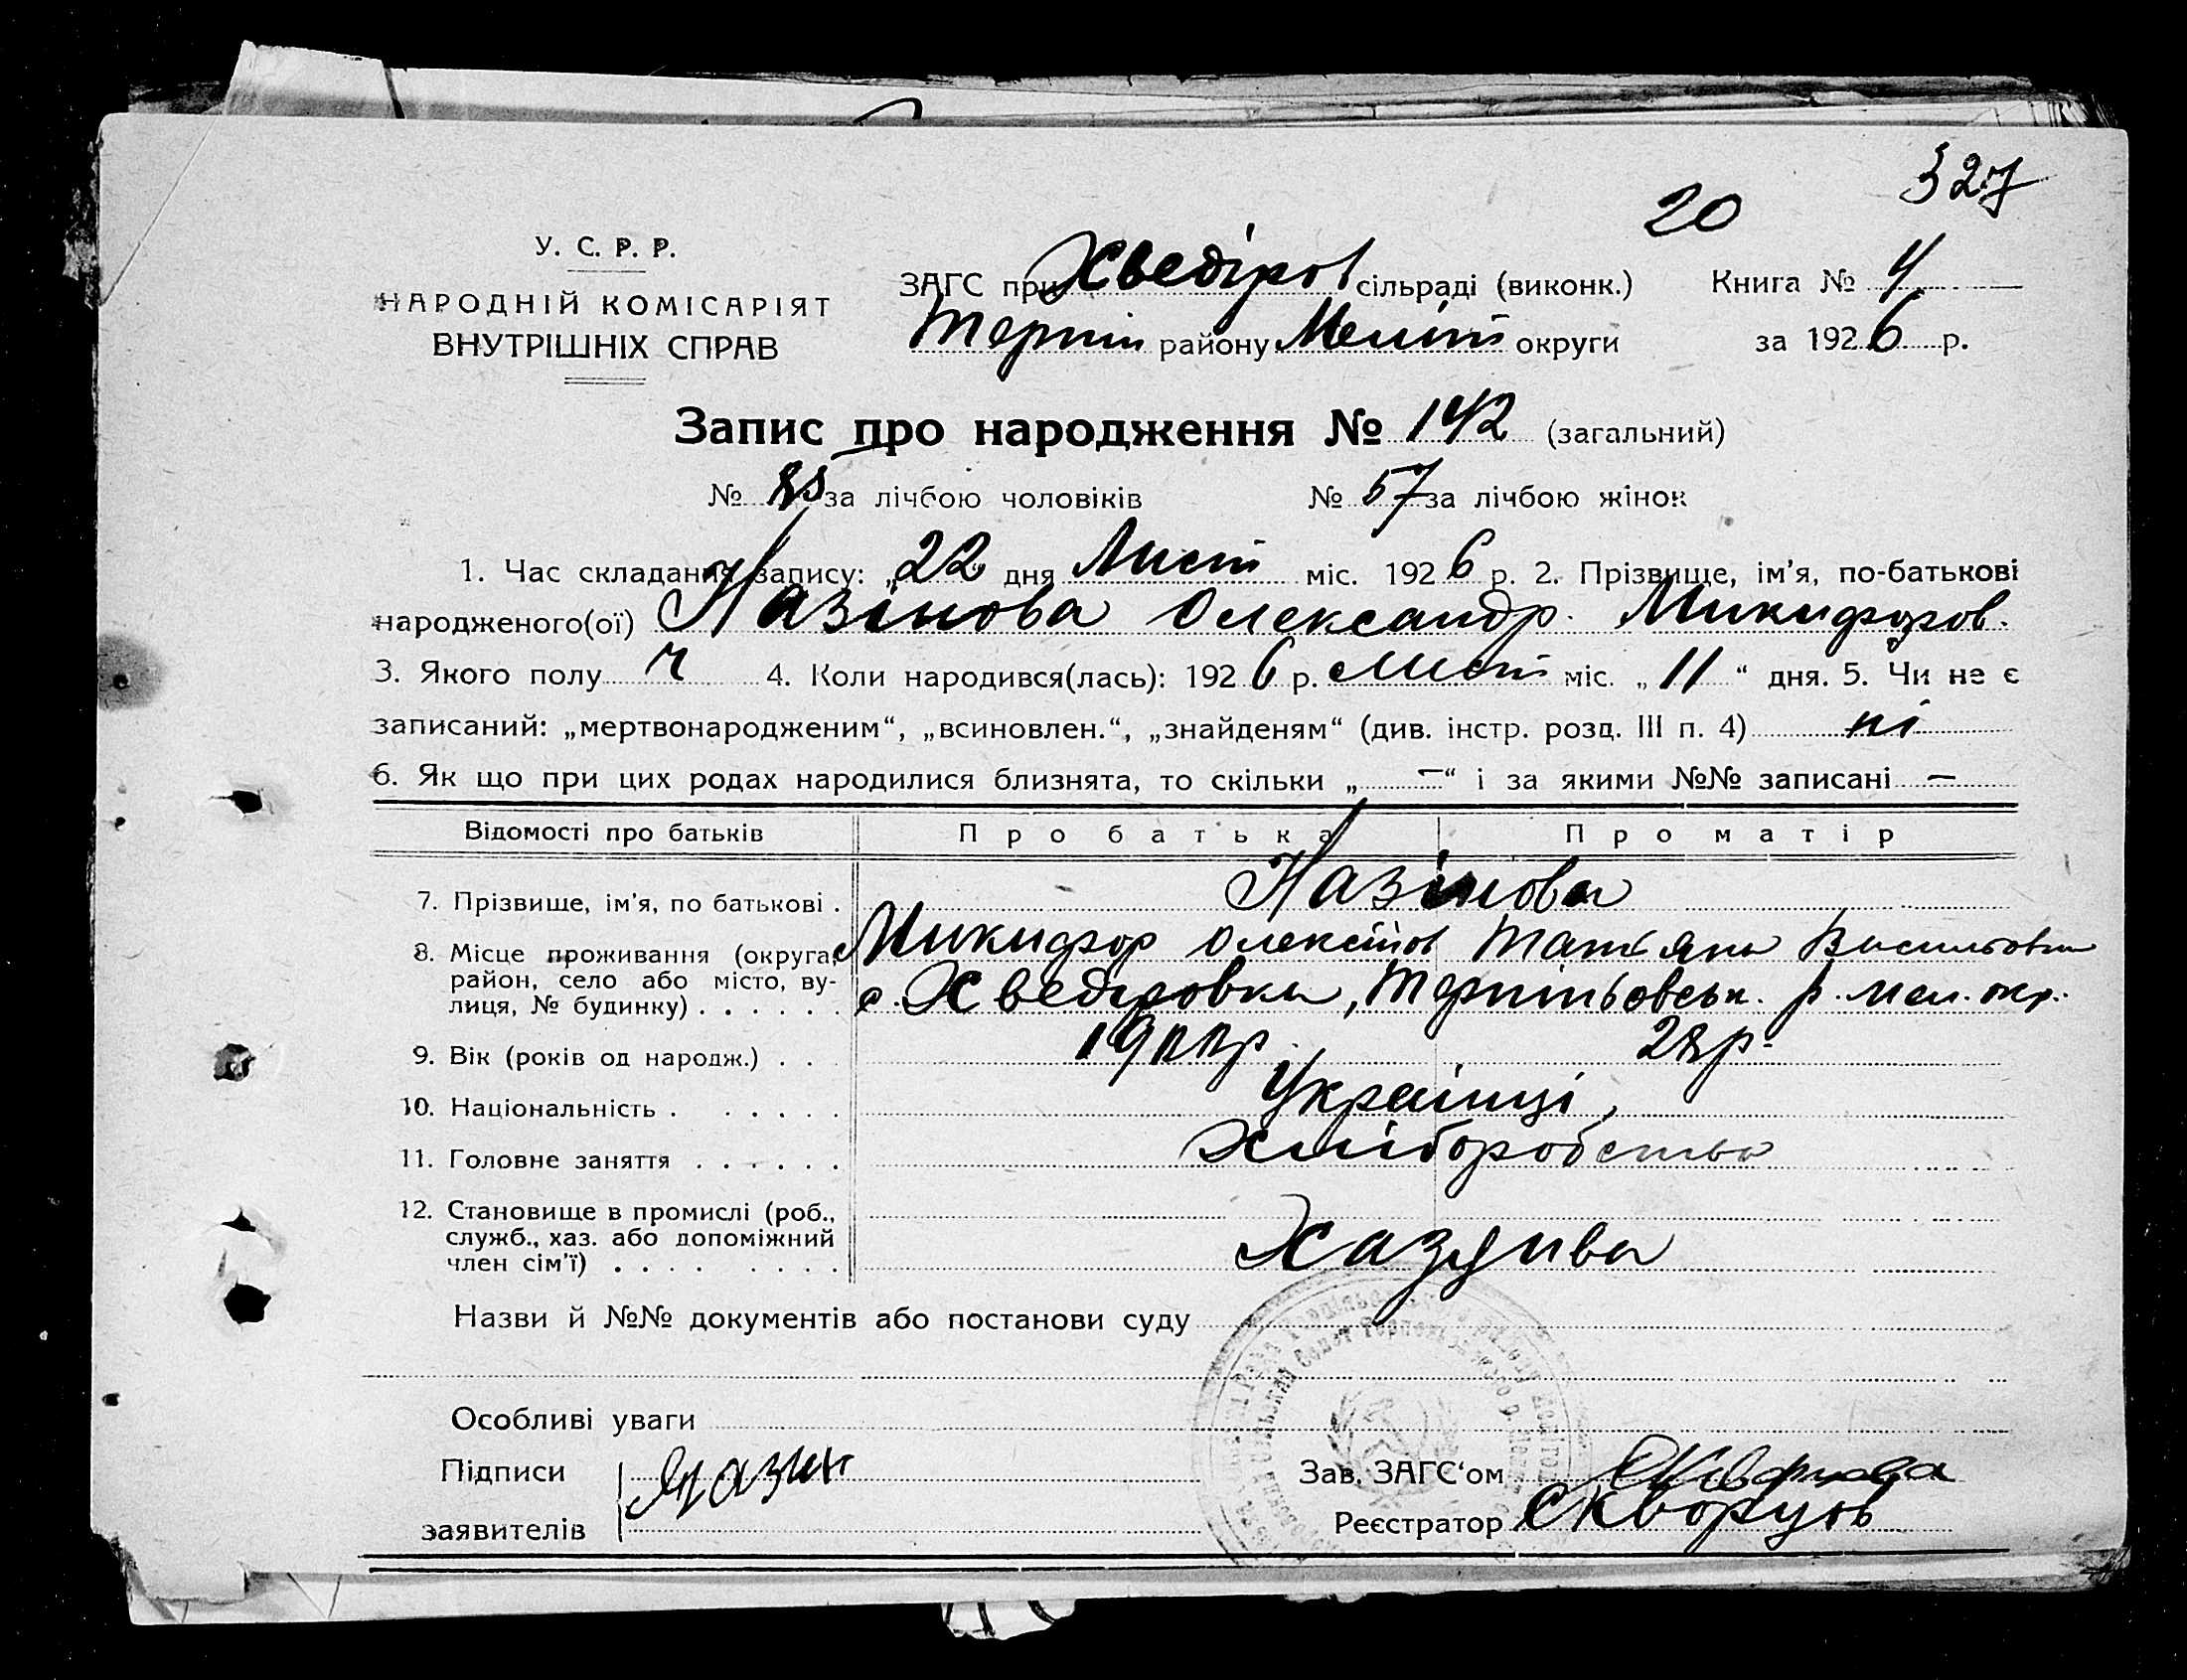 327
20
У. С. Р. Р.
НАРОДНІЙ КОМІСАРІЯТ
ВНУТРІШНІХ СПРАВ
ЗАГС при Хведіров сільраді (виконк.) Книга № 4
Терпін району Меліт округи за 1926 р.
Запис про народження № 142 (загальний)
№ 85 за лічбою чоловіків № 57 за лічбою жінок
1. Час складання запису: „22 дня Лист міс. 1926 р. 2. Прізвище, ім’я, по-батькові
народженого(ої) Назінова Олександр. Микифоров.
3. Якого полу ч 4. Коли народився(лась): 1926 р. Лист міс. „11“ дня. 5. Чи не є
записаний: „мертвонародженим“, „всиновлен.“, „знайденям“ (див. інстр. розд. III п. 4) ні
6. Як що при цих родах народилися близнята, то скільки „—“ і за якими №№ записані —
Відомості про батьків Про батька Про матір
7. Прізвище, ім’я, по батькові . Назінови
Микифор Олексійов Татьяна Васильовна
8. Місце проживання (округа, район, село або місто, ву-
лиця, № будинку) . . . . . . с. Хведоровка, Терпіньовськ. р. Мел. окр.
9. Вік (років од народж.) . . 28р.
10. Національність . . . . . . Українці,
11. Головне заняття . . . . . . Хліборобство
12. Становище в промислі (роб.,
служб., хаз. або допоміжний
член сім’ї) . . . . . . . . Хазяива
Назви й №№ документів або постанови суду
Особливі уваги
Підписи Назин Зав. ЗАГС‘ом
заявителів Реєстратор Скворцов